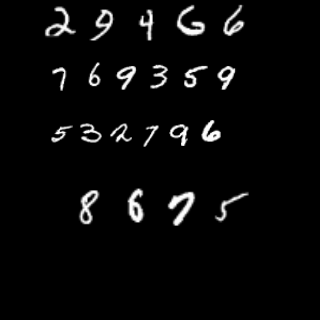 29466
769359
532796
8675